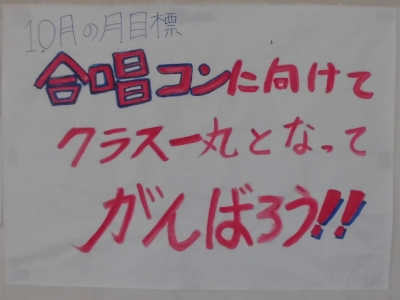 10月の月目標
合唱コンに向けて
クラス一丸となって
がんばろう!!